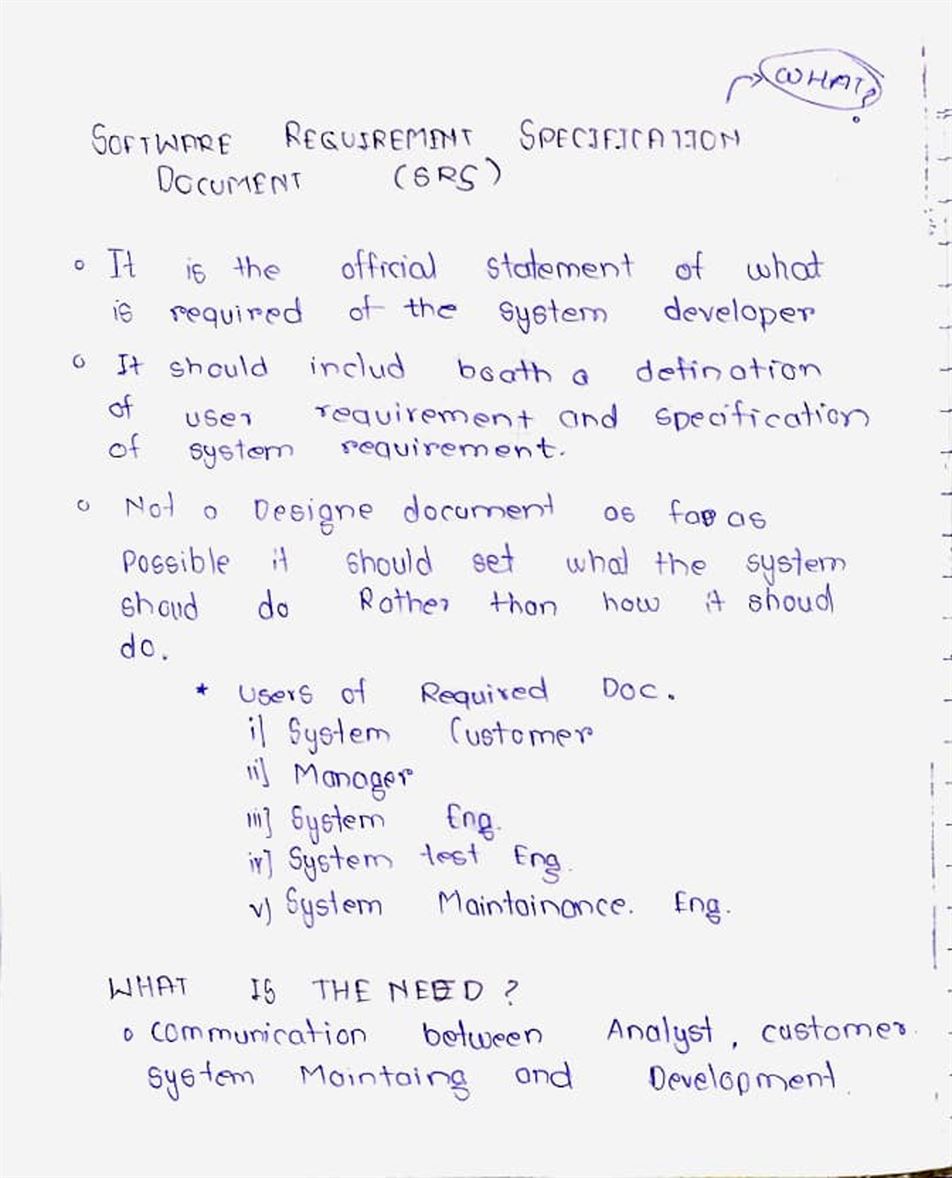 WHAT?
SOFTWARE REQUIREMENT SPECIFICATION
DOCUMENT (SRS)
It is the official statement of what
is required of the system developer
It should includ boath a defination
of user requirement and specification
of system requirement.
Not a Designe document as far as
Possible it should set what the system
shoud do Rather than how it shoud
do.
* Users of Required Doc.
i] System Customer
ii] Manager
iii] System Eng.
iv] System test Eng.
v] System Maintainance. Eng.
WHAT IS THE NEED ?
communication between Analyst, customer.
system Maintaing and Development.